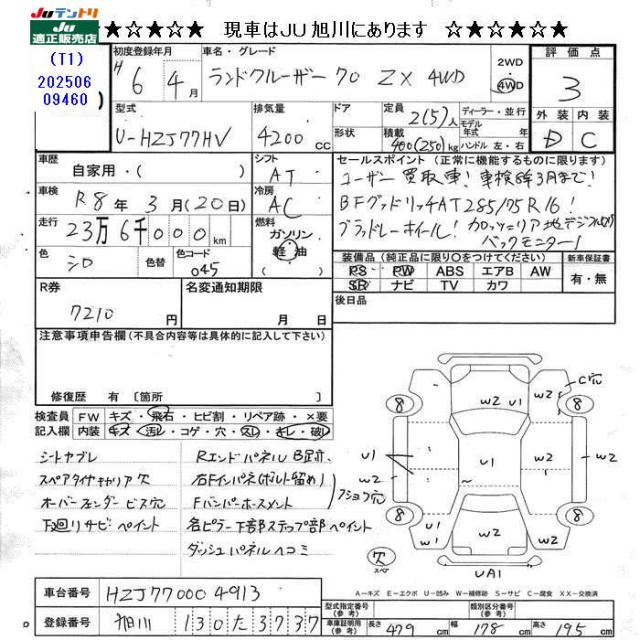 Juテントリ
Ju
適正販売店
★☆★☆★☆ 現車はJU旭川にあります ★☆★☆★☆
(T1)
202506
09460
初度登録年月
H 6年 4月
車名・グレード
ランドクルーザー70 ZX 4WD
2WD
4WD
評価点
3
外装 内装
D C
型式
U-HZJ77HV
排気量
4200 cc
ドア
形状
定員
2(5)人
積載
400(250)kg
ディーラー・並行
モデル
年式 年
ハンドル 左・右
車歴
自家用・( )
シフト
AT
車検
R8年 3月(20日)
冷房
AC
走行
23万6千000km
燃料
ガソリン
軽油
色
シロ
色替
色コード
045
セールスポイント(正常に機能するものに限ります)
ユーザー買取車!車検8年3月まで!
BFグッドリッチAT 285/75R16!
ブラッドレーホイール!カロッツェリア地デジフルセグ
バックモニター!
装備品(純正品に限り○をつけてください)
PS PW ABS エアB AW
SR ナビ TV カワ
新車保証書
有・無
後日品
R券
7210円
名変通知期限
月 日
注意事項申告欄(不具合内容等は具体的に記入して下さい)
修復歴 有 〔箇所
検査員
記入欄
FW キズ・飛石・ヒビ割・リペア跡・×要
内装 キズ・汚レ・コゲ・穴・スレ・キレ・破レ
シートヤブレ
スペアタイヤキャリア欠
オーバーフェンダービス穴
下廻りサビペイント
RエンドパネルB留介
右Fインパネ(ボルト留め)
Fバンパーホースメント
フショク穴
各ピラー下部ステップ部ペイント
ダッシュパネルヘコミ
8
8
8
8
W2
U1
W2
W2
C穴
U1
W2
U1
W2
W2
U1
W1
W2
U1
W2
欠
スペア
UA1
A=キズ E=エクボ U=凹み W=補修跡 S=サビ C=腐食 XX=交換済
車台番号
HZJ770004913
登録番号
旭川 130 た 3737
型式指定番号
(参考)
類別区分番号
(参考)
車庫証明用
(参考)
長さ 479
幅 178
高さ 195cm